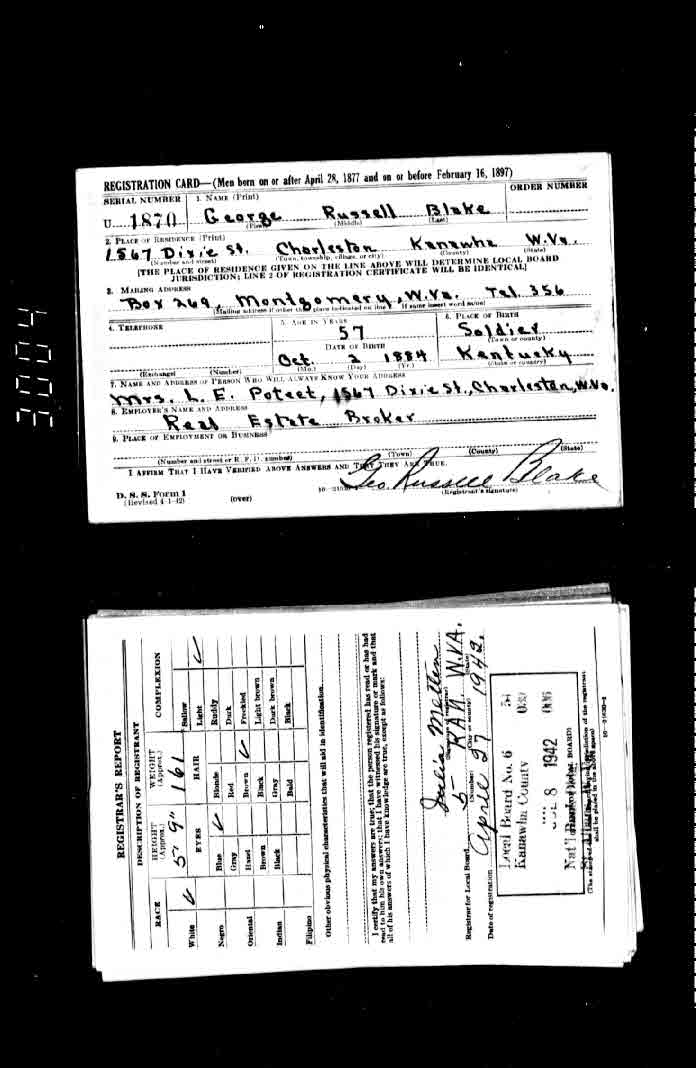 3004
REGISTRATION CARD—(Men born on or after April 28, 1877 and on or before February 16, 1897)
SERIAL NUMBER 1. NAME (Print) ORDER NUMBER
U 1870 George Russell Blake
(First) (Middle) (Last)
2. PLACE OF RESIDENCE (Print)
1567 Dixie St. Charleston Kanawha W.Va.
(Number and street) (Town, township, village, or city) (County) (State)
[THE PLACE OF RESIDENCE GIVEN ON THE LINE ABOVE WILL DETERMINE LOCAL BOARD
JURISDICTION; LINE 2 OF REGISTRATION CERTIFICATE WILL BE IDENTICAL]
3. MAILING ADDRESS
Box 269, Montgomery, W.Va. Tel. 356
(Mailing address if other than place indicated on line 2. If same insert word same)
4. TELEPHONE 5. AGE IN YEARS 6. PLACE OF BIRTH
57 Soldier
(Town or county)
DATE OF BIRTH
Oct. 2 1884 Kentucky
(Exchange) (Number) (Mo.) (Day) (Yr.) (State or country)
7. NAME AND ADDRESS OF PERSON WHO WILL ALWAYS KNOW YOUR ADDRESS
Mrs. L. E. Poteet, 1567 Dixie St., Charleston, W.Va.
8. EMPLOYER'S NAME AND ADDRESS
Real Estate Broker
9. PLACE OF EMPLOYMENT OR BUSINESS
(Number and street or R. F. D. number) (Town) (County) (State)
I AFFIRM THAT I HAVE VERIFIED ABOVE ANSWERS AND THAT THEY ARE TRUE.
Geo. Russell Blake
D. S. S. Form 1
(Revised 4-1-42) (over) (Registrant's signature)
REGISTRAR'S REPORT
DESCRIPTION OF REGISTRANT
RACE HEIGHT (Approx.) WEIGHT (Approx.) COMPLEXION
5' 9" 161
White EYES HAIR Sallow
Light
Negro Blue Blonde Ruddy
Gray Red Dark
Oriental Hazel Brown Freckled
Brown Black Light brown
Indian Black Gray Dark brown
Bald Black
Filipino
Other obvious physical characteristics that will aid in identification
I certify that my answers are true; that the person registered has read or has had
read to him his own answers; that I have witnessed his signature or mark and that
all of his answers of which I have knowledge are true, except as follows:
Registrar for Local Board 5 KAN. W.VA.
(Number) (City or county) (State)
Date of registration April 27 1942.
Local Board No. 6
Kanawha County
8 1942
(The stamp of the Local Board having jurisdiction of the registrant
shall be placed in the above space)